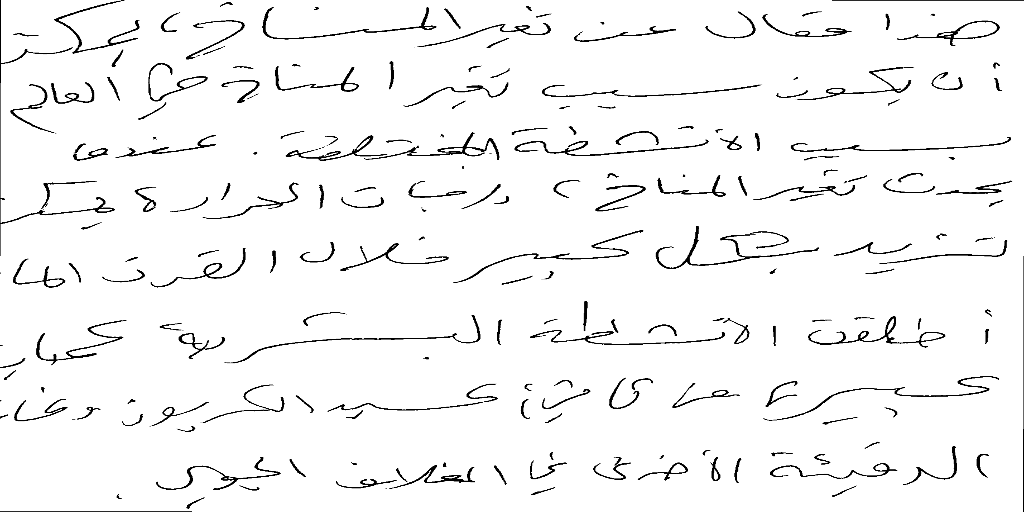 هذا مقال عن تغير المناخ، يمكن
أن يكون سبب تغير المناخ في العالم
بسبب الأنشطة المختلفة. عندما
يحدث تغير المناخ، درجات الحرارة يمكن
تزيد بشكل كبير خلال القرن الما
أطلقت الأنشطة البشرية كميات
كبيرة من ثاني أكسيد الكربون وغا
الدفيئة الأخرى في الغلاف الجوي.